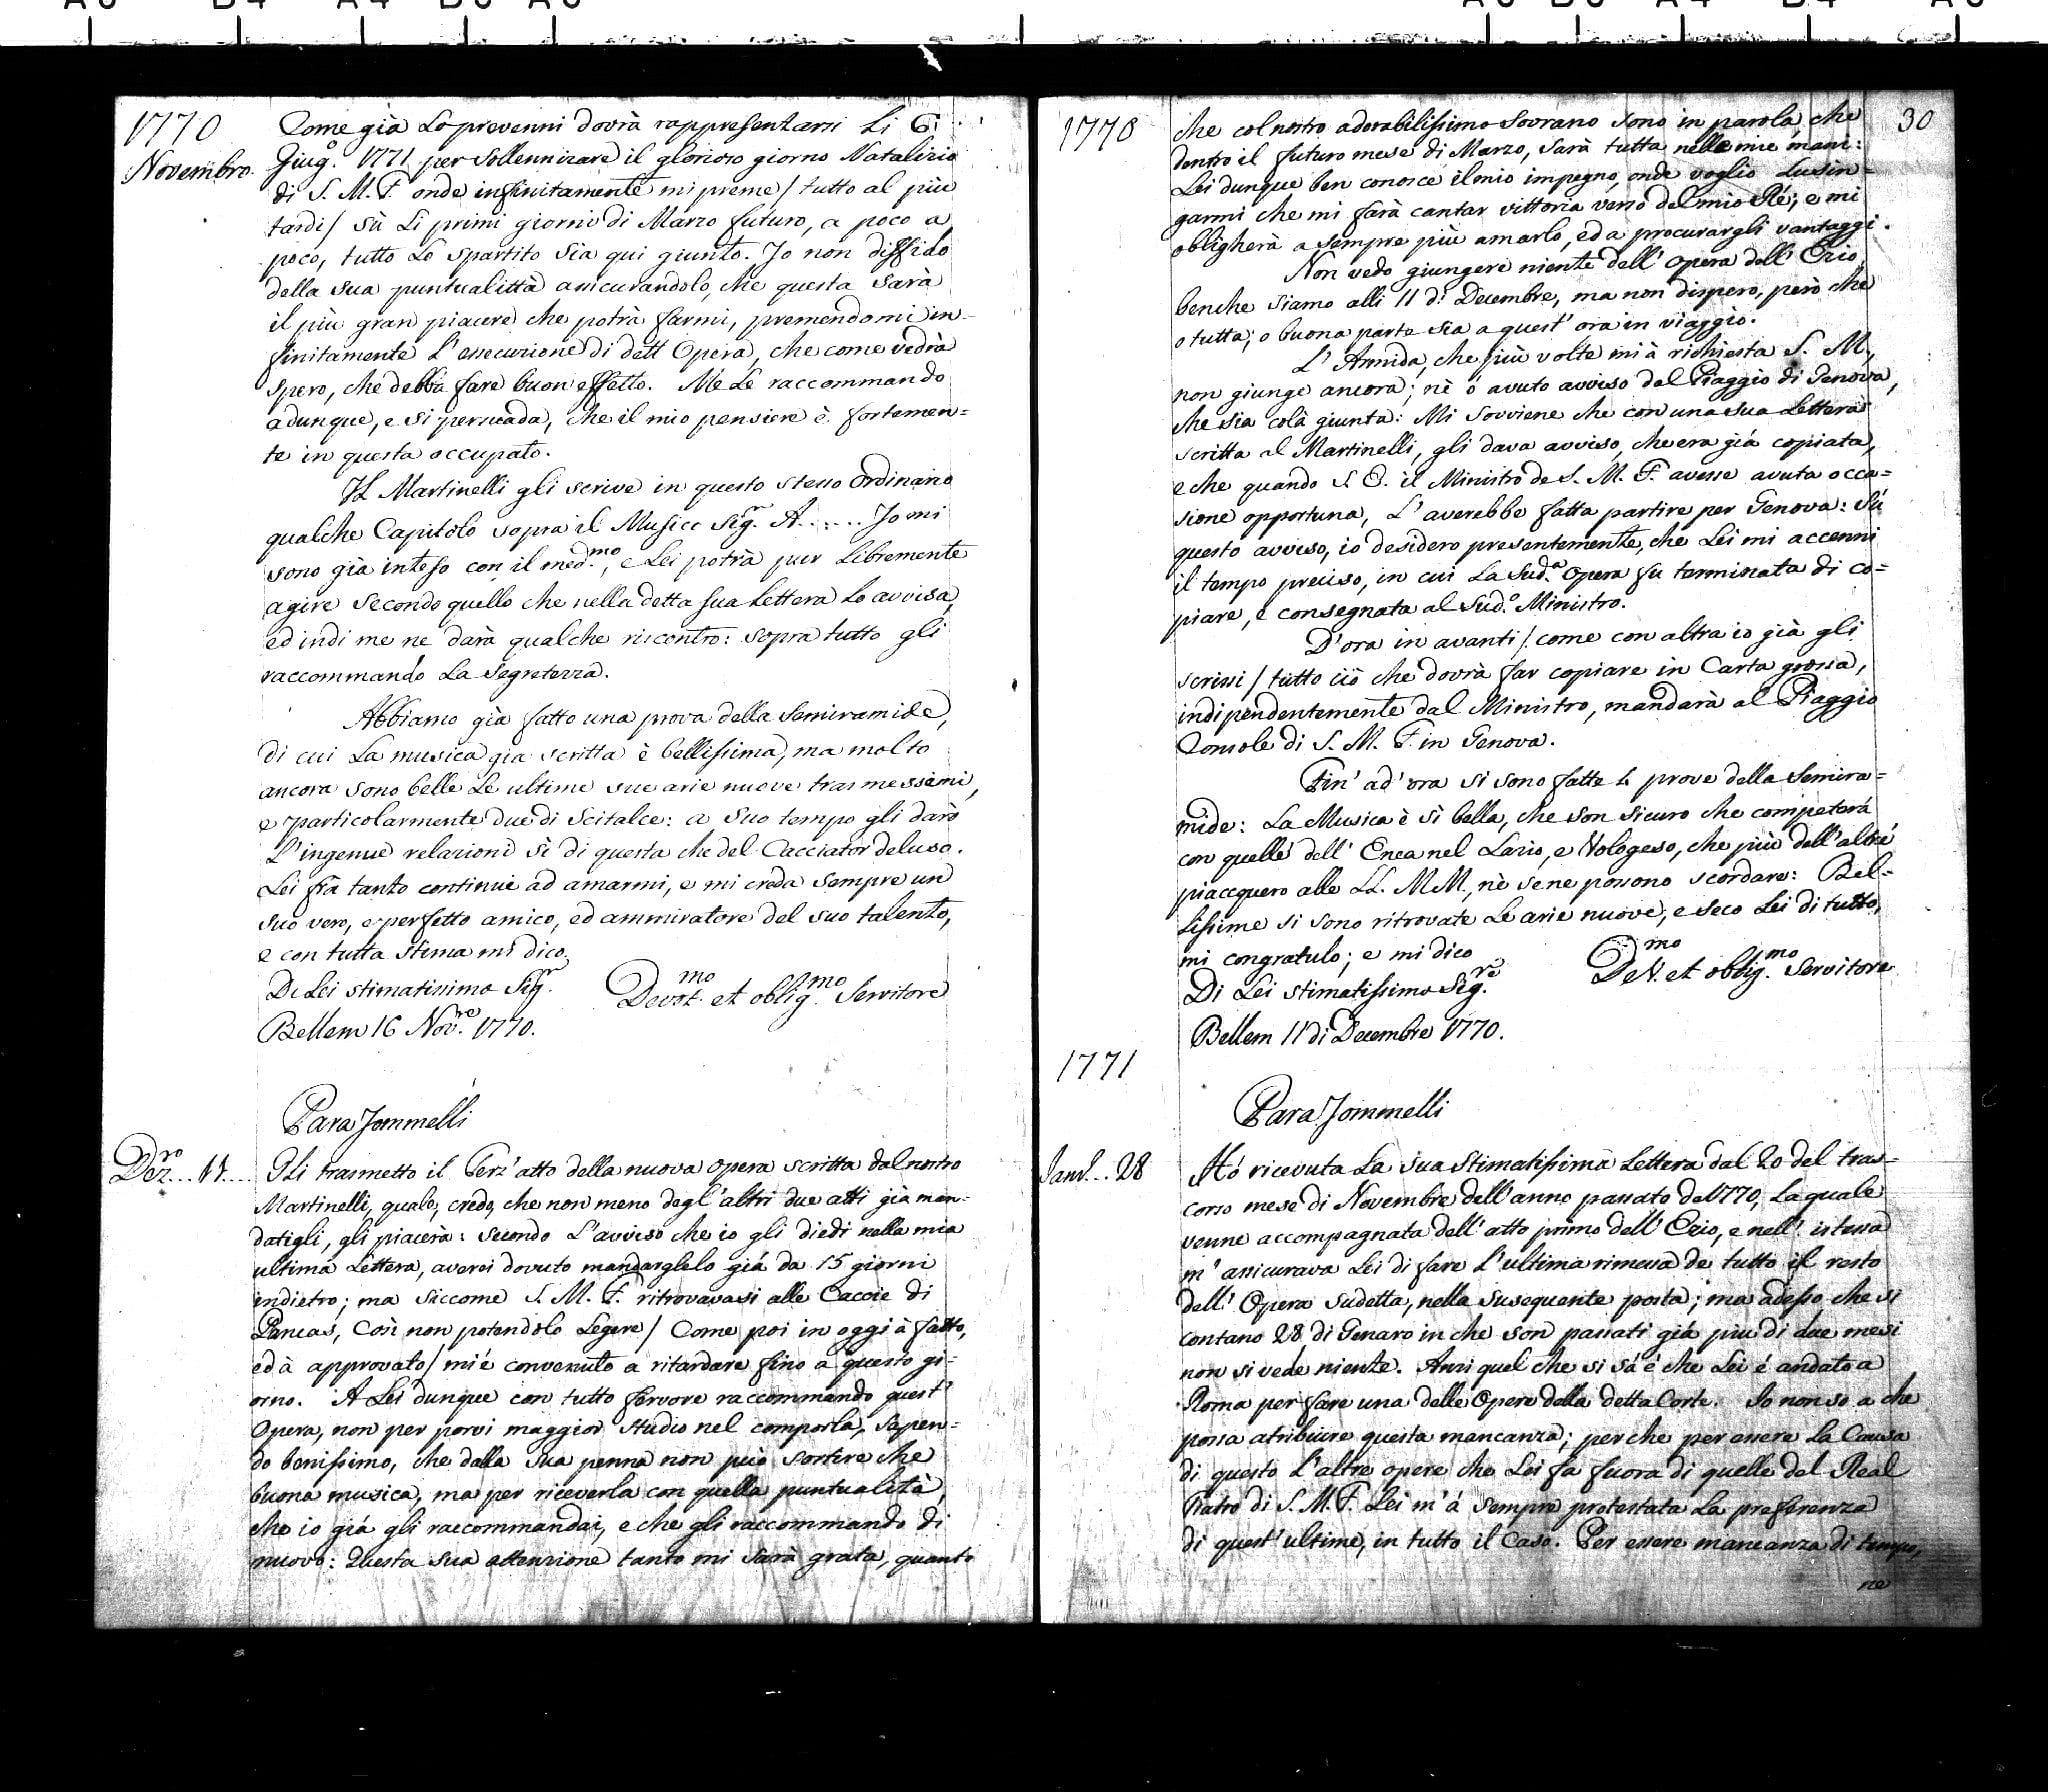 1770
Novembro.
Come già Lo prevenni dovrà rappresentarsi Li 6
Giug.º 1771 per sollennizare il glorioso giorno Natalizio
di S. M. F. onde infinitamente mi preme / tutto al più
tardi / sù Li primi giorni di Marzo futuro, a poco a
poco, tutto Lo spartito sia qui giunto. Io non diffido
della sua puntualittà assicurandolo, che questa sarà
il più gran piacere che potrà farmi, premendomi in-
finitamente L'essecuzione di dett'Opera, che come vedrà
spero, che debba fare buon effetto. Me Le raccommando
adunque, e si persuada, che il mio pensiere è fortemen=
te in questa occupato.
Il Martinelli gli scrive in questo stesso Ordinario
qualche Capitolo sopra il Musico Sig.r A...... Io mi
sono già inteso con il med.mo, e Lei potrà pur Liberamente
agire secondo quello che nella detta sua Lettera Lo avvisa,
ed indi me ne darà qualche riscontro: sopra tutto gli
raccommando La segretezza.
Abbiamo già fatto una prova della Semiramide,
di cui La musica già scritta è bellissima, ma molto
ancora sono belle Le ultime sue arie nuove trasmessemi,
e particolarmente due di Scitalce: a suo tempo gli darò
L'ingenue relazioni sì di questa che del Cacciator deluso.
Lei frà tanto continue ad amarmi, e mi creda sempre un
suo vero, e perfetto amico, ed ammiratore del suo talento,
e con tutta stima mi dico.
Di Lei stimatissimo Sig.r
Devot.mo et oblig.mo Servitore
Bellem 16 Nov.re 1770.
Para Jommelli
Dez.ro .. 11....
Gli trasmetto il Terz'atto della nuova Opera scritta dal nostro
Martinelli, quale, credo, che non meno degl'altri due atti già man-
datigli, gli piacerà: secondo L'avviso che io gli diedi nella mia
ultima Lettera, averei dovuto mandarglelo già da 15 giorni
indietro; ma siccome S. M. F. ritrovavasi alle Caccie di
Pancas, così non potendolo Legere / Come poi in oggi à fatto,
ed à approvato / mi é convenuto a ritardare fino a questo gi-
orno. A Lei dunque con tutto fervore raccommando quest'
Opera, non per porvi maggior studio nel comporla, sapen-
do benissimo, che dalla sua penna non può sortire che
buona musica, ma per riceverla con quella puntualità,
che io già gli raccommandai, e che gli raccommando di
nuovo: Questa sua attenzione tanto mi sarà grata, quanto
1770
30
che col nostro adorabilissimo Sovrano sono in parola, che
dentro il futuro mese di Marzo, sarà tutta nelle mie mani:
Lei dunque ben conosce il mio impegno, onde voglio Lusin=
garmi che mi farà cantar vittoria verso del mio Ré; e mi
obligherà a sempre più amarlo, ed a procurargli vantaggi.
Non vedo giungere niente dell'Opera dell'Ezio,
benche siamo alli 11 d.i Decembre, ma non dispero, però che
o tutta, o buona parte sia a quest'ora in viaggio.
L'Armida, che più volte mi à richiesta S. M.,
non giunge ancora; nè ó avuto avviso dal Piaggio di Genova,
che sia colà giunta: Mi sovviene che con una sua Lettera
scritta al Martinelli, gli dava avviso, che era già copiata,
e che quando S. E. il Ministro de S. M. F. avesse avuta occa=
sione opportuna, L'averebbe fatta partire per Genova: Sù
questo avviso, io desidero presentemente, che Lei mi accenni
il tempo preciso, in cui La Sud.a Opera fu terminata di co=
piare, e consegnata al Sud.º Ministro.
D'ora in avanti / come con altra io già gli
scrissi / tutto ciò che dovrà far copiare in Carta grossa,
indipendentemente dal Ministro, mandarà al Piaggio
Console di S. M. F. in Genova.
Fin'ad'ora si sono fatte 4 prove della Semira=
mide: La Musica è sì bella, che son sicuro che competerà
con quelle dell'Enea nel Lazio, e Vologeso, che più dell'altre
piacquero alle LL. MM., nè se ne possono scordare: Bel-
lissime si sono ritrovate Le arie nuove, e seco Lei di tutto,
mi congratulo; e mi dico
Di Lei stimatissimo Sig.re
Dev.mo et oblig.mo Servitore
Bellem 11 di Decembre 1770.
1771
Para Jommelli
Janr.º... 28
Hó ricevuta La sua stimatissima Lettera dal 20 del tras-
corso mese di Novembre dell'anno passato de 1770, La quale
venne accompagnata dell'atto primo dell'Ezio, e nell'istessa
m'assicurava Lei di fare L'ultima rimessa de tutto il resto
dell'Opera sudetta, nella susequente posta; ma adesso che si
contano 28 di Genaro in che son passati già piu di due mesi
non si vede niente. Anzi quel che si sá é che Lei é andato a
Roma per fare una delle Opere della detta Corte. Io non so a che
possa atribuire questa mancanza; perche per essere La Causa
di questo L'altre opere che Lei fa fuora di quelle del Real
Teatro di S. M. F. Lei m'á sempre protestata La preferenza
di quest'ultime, in tutto il Caso. Per essere mancanza di tempo,
ne